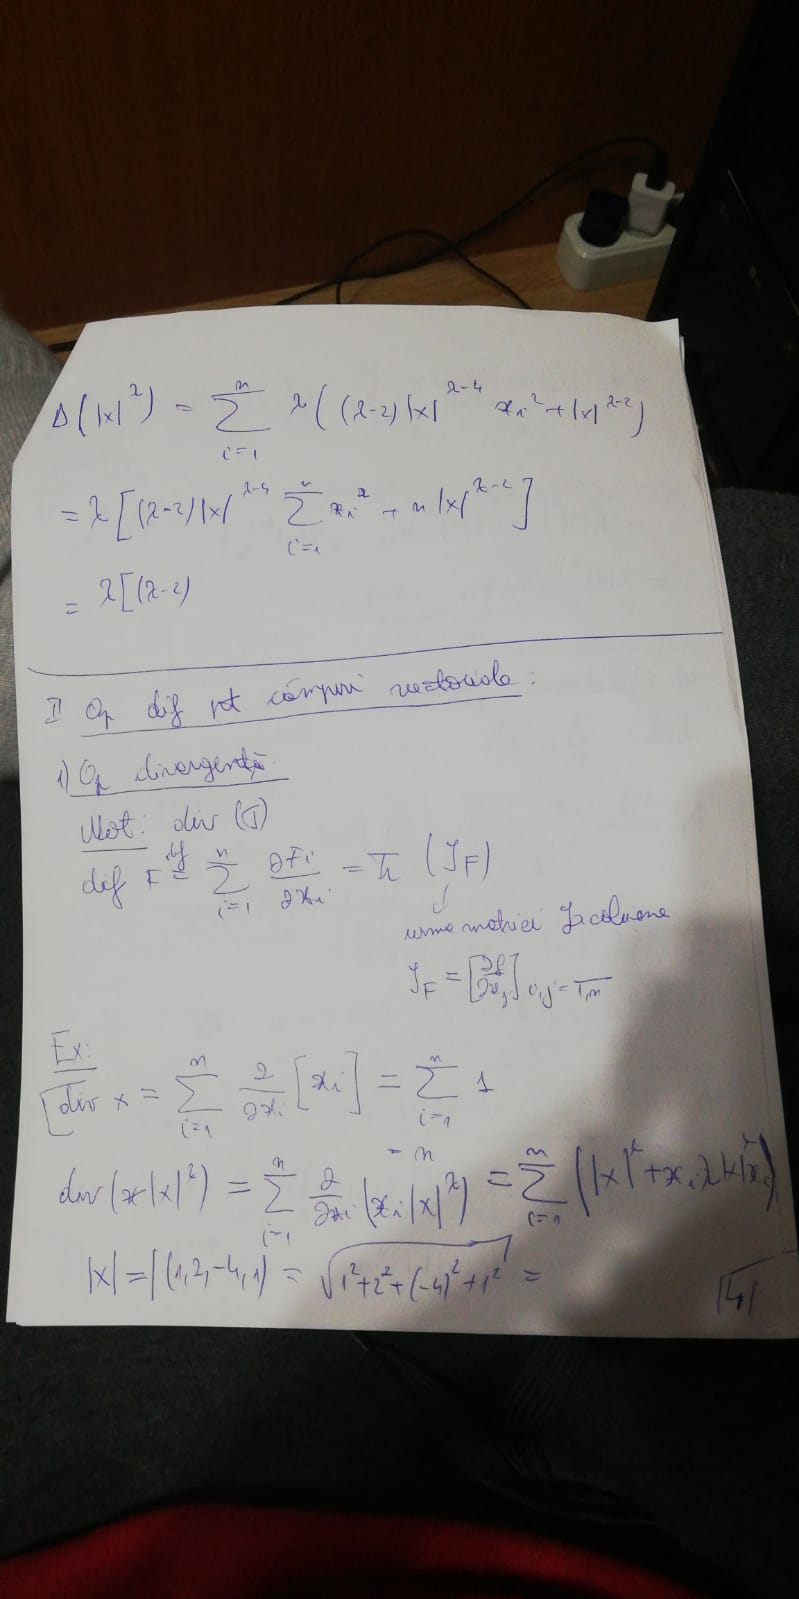 Δ(|x|^λ) = ∑_{i=1}^{n} λ((λ-2)|x|^{λ-4} x_i^2 + |x|^{λ-2})
= λ[(λ-2)|x|^{λ-4} ∑_{i=1}^{n} x_i^2 + n|x|^{λ-2}]
= λ[(λ-2)
II Op dif pt câmpuri vectoriale:
1) Op divergență
Not: div (F)
dif F =^{def} ∑_{i=1}^{n} ∂F_i/∂x_i = Tr (J_F)
urma matricei Jacobiene
J_F = [∂f/∂x_j] i,j=1,n
Ex:
div x = ∑_{i=1}^{n} ∂/∂x_i [x_i] = ∑_{i=1}^{n} 1
= n
div(x|x|^λ) = ∑_{i=1}^{n} ∂/∂x_i (x_i|x|^λ) = ∑_{i=1}^{n} (|x|^λ + x_i λ|x| x_i)
|x| = |(1,2,-4,1) = √(1^2+2^2+(-4)^2+1^2) =
|4|